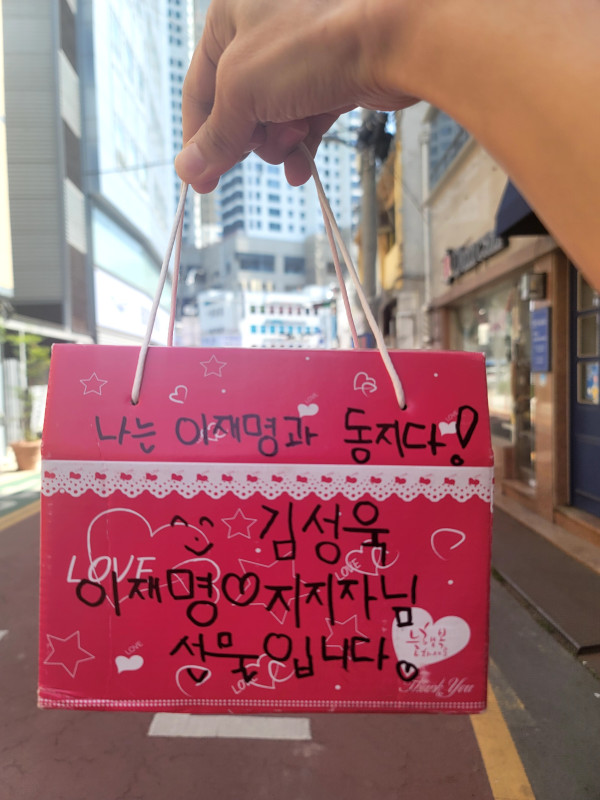 나는 이재명과 동지다!
김성욱
LOVE
이재명♡지지자님
LOVE
선물♡입니다
LOVE
LOVE
Thank You